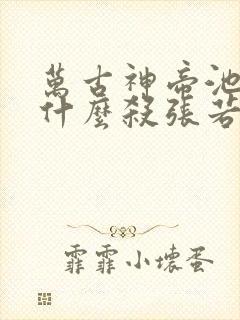 萬古神帝池
什麼殺張若
霏霏小壞蛋